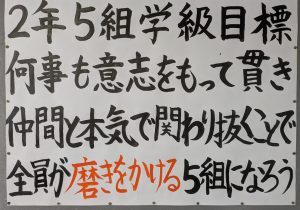 2年5組学級目標
何事も意志をもって貫き
仲間と本気で関わり抜くことで
全員が磨きをかける5組になろう